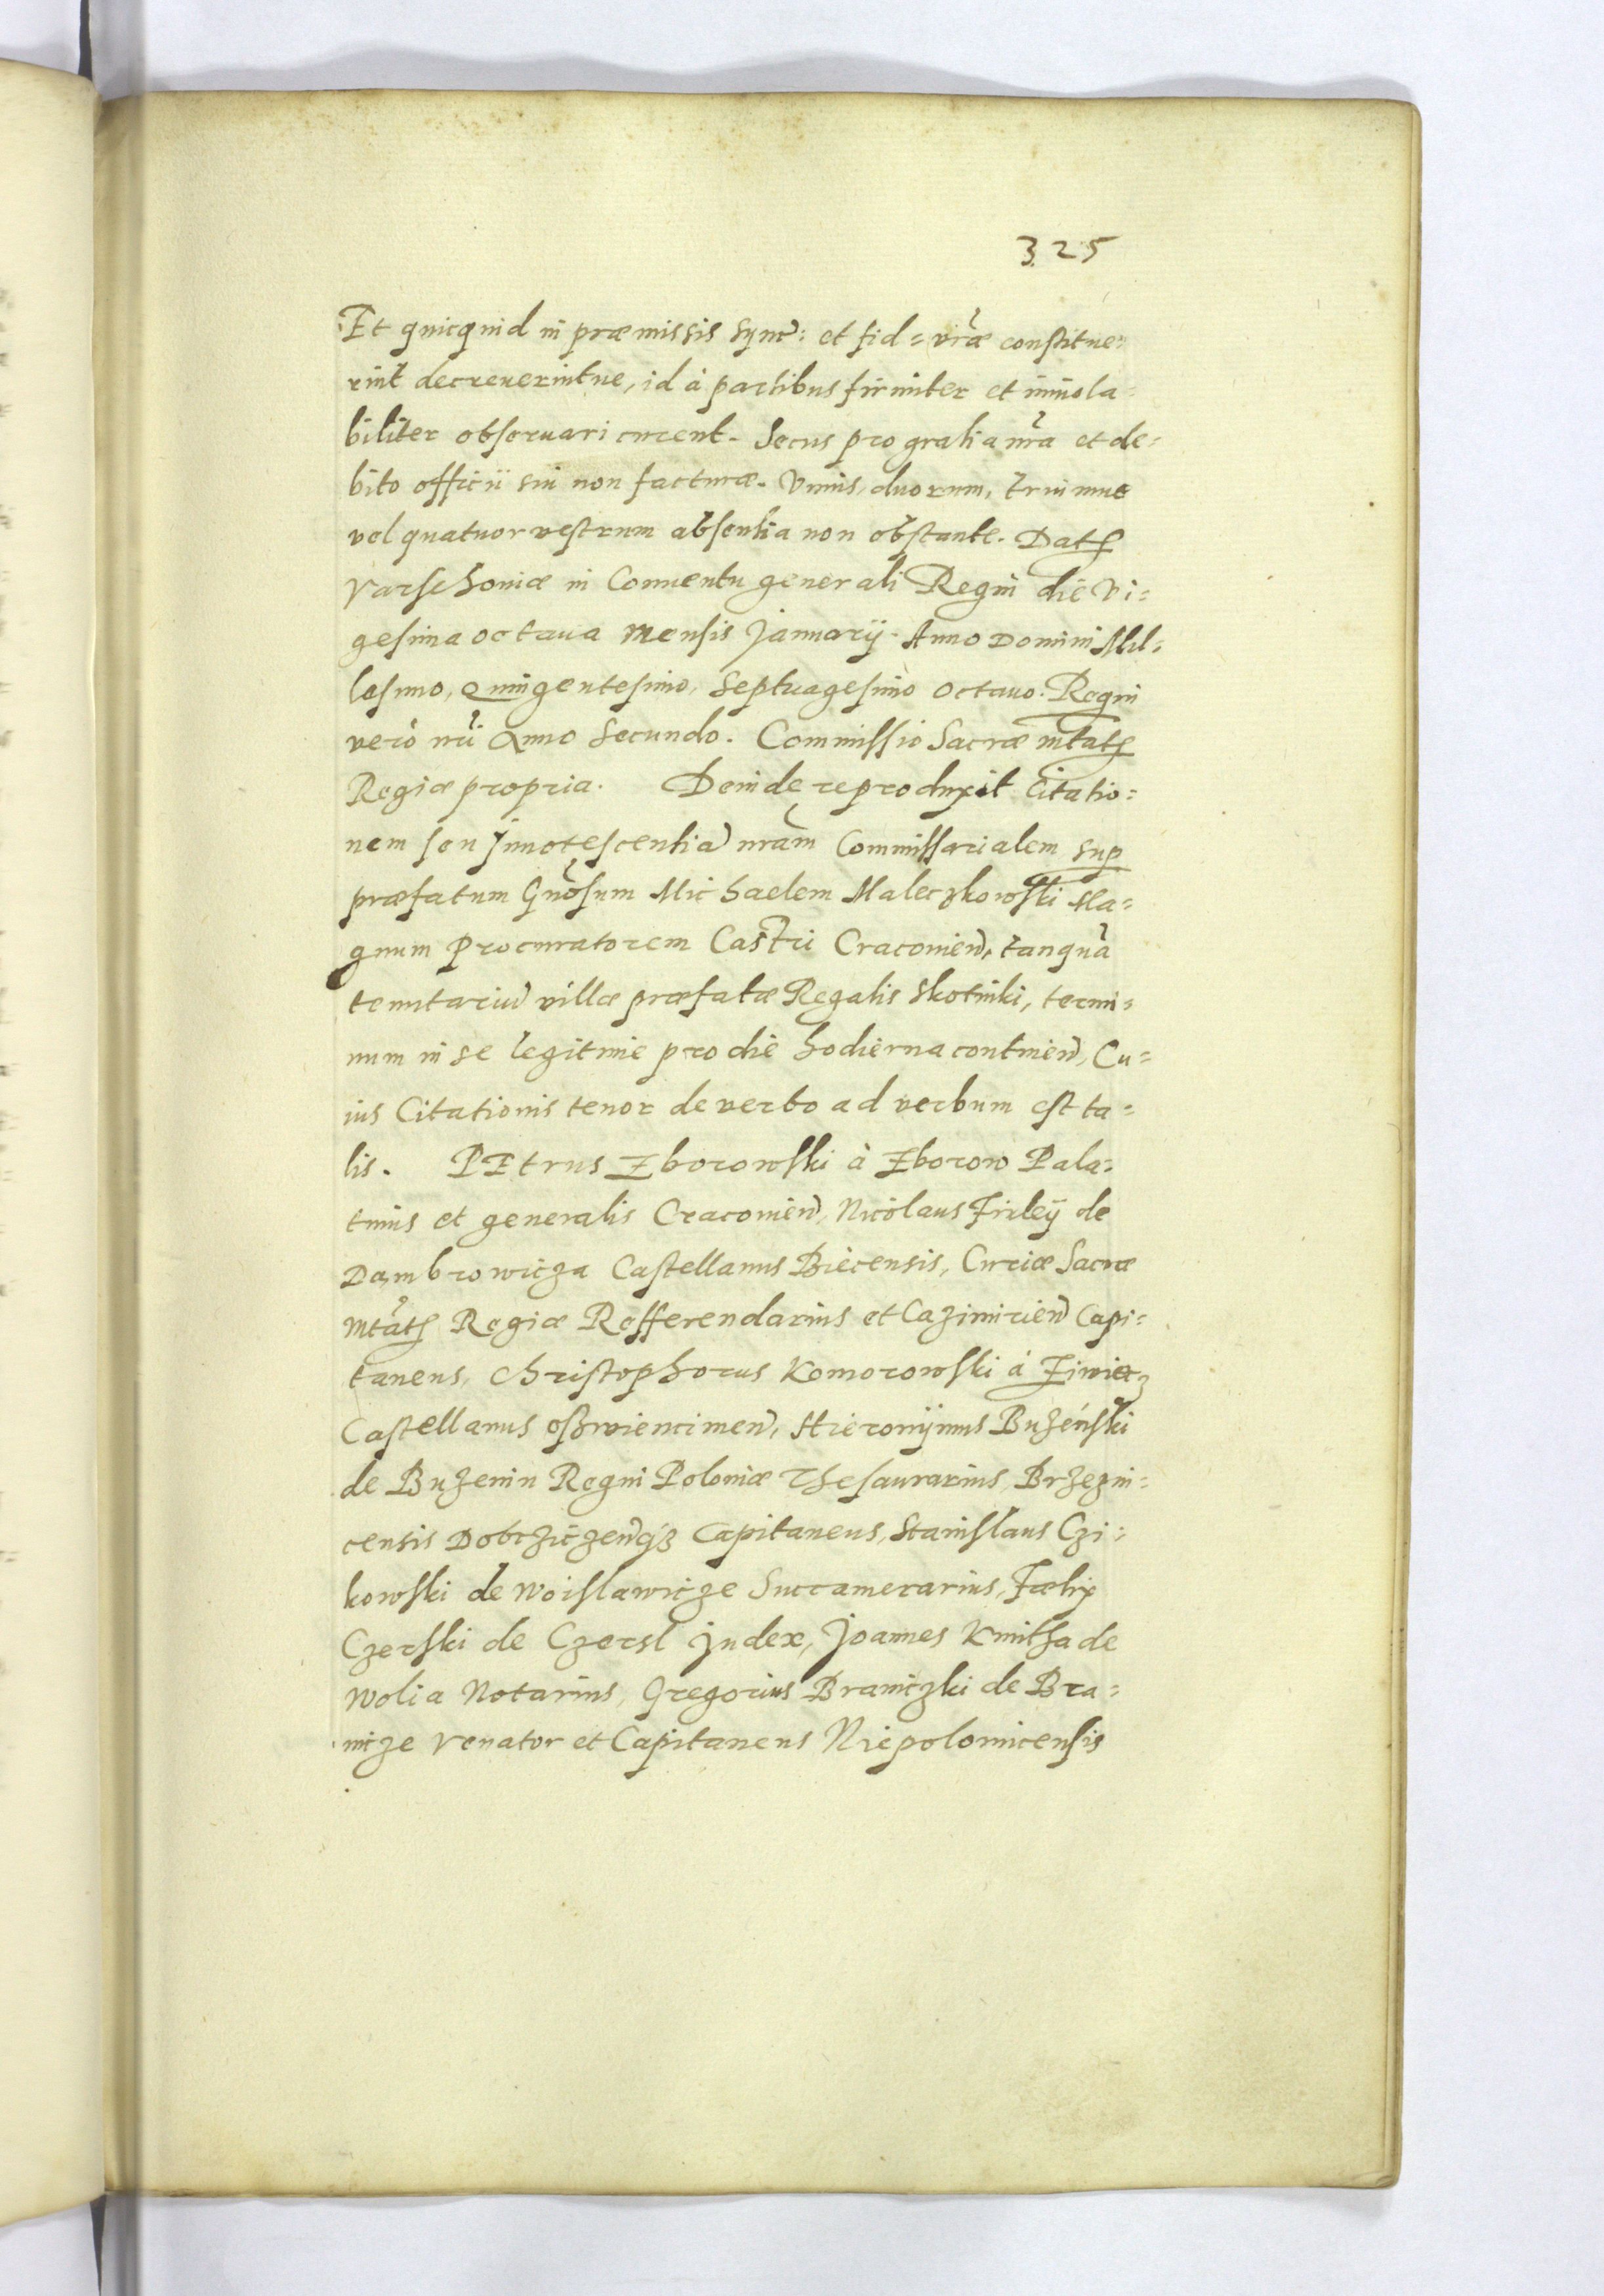 325
Et quicquid in præmissis Synć: et fid= vr̃æ constitue=
rint decreuerintue, id à partibus firmiter et inuiola=
biliter obseruari curent. Secus pro gratia nr̃a et de=
bito officii sui non facturæ. Vnius, duorum, trium ue
vel quatuor vestrum absentia non obstante. Datꝭ
Varschouiæ in Conuentu generali Regni die Vi=
gesima octaua Mensis Januarij. Anno Domini Mil=
lesimo, Quingentesimo, Septuagesimo octauo. Regni
verò nr̃i Anno Secundo. Commissio Sacræ Mtatꝭ
Regiæ propria. Deinde reproduxit Citatio=
nem seu Jnnotescentiã nr̃am Commissarialem sup
præfatum Gnõsum Michaelem Maleczkowski Ma=
gnum Procuratorem Castri Cracouieñ, tanquã
tenutariũ villæ præfatæ Regalis Skotniki, termi=
num in se legitime pro die hodierna contineñ, Cu=
ius Citationis tenor de verbo ad verbum est ta=
lis. PEtrus Zborowski à Zborow Pala=
tinus et generalis Cracouieñ, Nicolaus Firleij de
Dambrowicza Castellanus Biecensis, Curiæ Sacræ
Mtatꝭ Regiæ Refferendarius et Cazimirieñ Capi=
taneus, Christophorus Komorowski à Ziwiecz
Castellanus oßwiencimeñ, Hieronijmus Bużeński
de Buzenin Regni Poloniæ Thesaurarius, Brzezni=
censis Dobcziczeñqꝫ Capitaneus, Stanislaus Czi=
kowski de Woislawicze Succamerarius, Fælix
Czerski de Czersl Judex, Joannes Kmitha de
Wolia Notarius, Gregorius Braniczki de Bra=
nicze Venator et Capitaneus Niepolomicensis